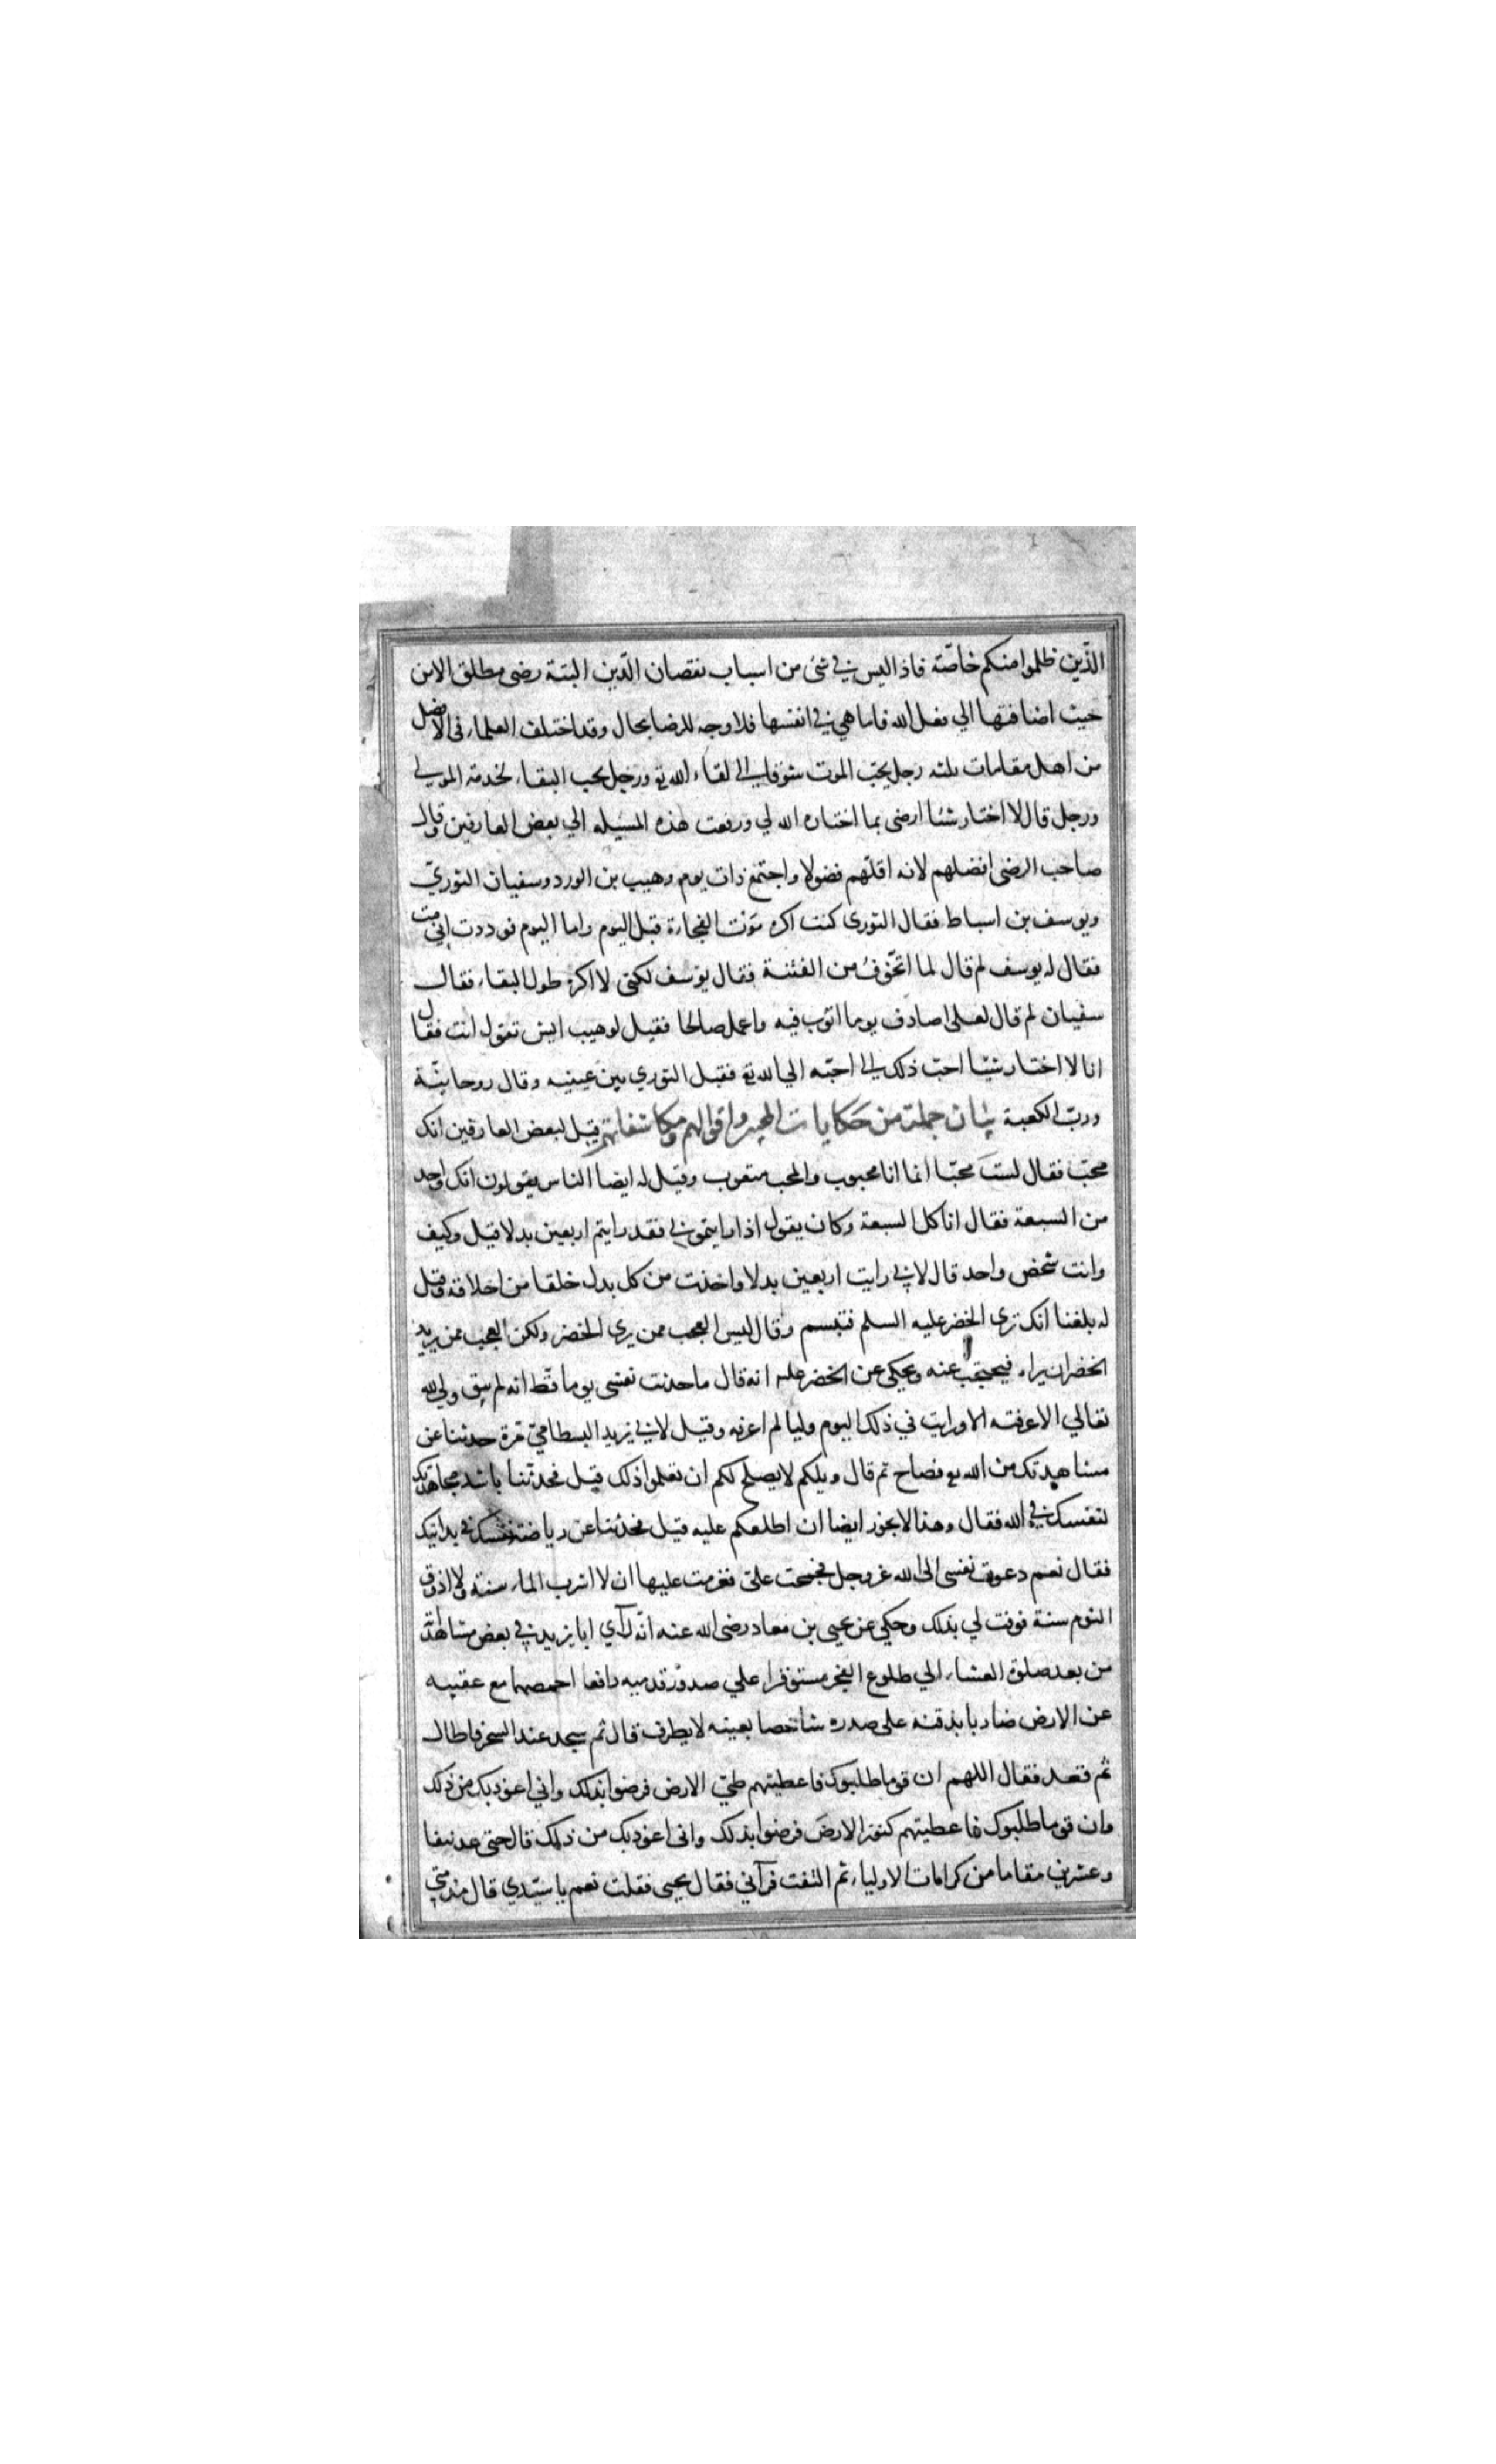 الّذين ظلموا منكم خاصّة فاذا ليس في شئ من اسباب نقصان الدّين البتة رضى مطلق الا من
حيث اضافتها الي فعل الله فاما هي في انفسها فلا وجه للرضا بحال وقد اختلف العلماء في الافضل
من اهل مقامات ثلثه رجل يحبّ الموت شوقا الى لقاء الله تع ورجل يحب البقاء لخدمة المولي
ورجل قال لا اختار شئا ارضى بما اختاره الله لي ورفعت هذه المسئله الي بعض العارفين وقال
صاحب الرضى افضلهم لانه اقلّهم فضولا واجتمع ذات يوم وهيب بن الورد وسفيان الثوريّ
ويوسف بن اسباط فقال الثورى كنت اكره مَوْت الفجارة قبل اليوم واما اليوم فوددت اني مت
فقال له يوسف لم قال لما اتخّوفُ من الفتنة فقال يوسف لكنى لا اكره طول البقاء فقال
سفيان لم قال لعلى اصادف يوما اتوب فيه واعمل صالحا فقيل لوهيب ايش تقول انت فقال
انا لا اختار شيّا احبّ ذلك الى احبّه الي الله تع فقبل الثوري بين عينيه وقال روحانيّة
وربّ الكعبة بيان جملة من حكايات المحبين واقوالهم ومكاشفاتهم قيل لبعض العارفين انك
محبّ فقال لستَ محبّا انما انا محبوب والمحب متعوب وقيل له ايضا الناس يقولون انك واحد
من السبعة فقال انا كل السبعة وكان يقول اذا رايتموني فقد رايتم اربعين بدلا قيل وكيف
وانت شخص واحد قال لاني رايت اربعين بدلا واخذت من كل بدل خلقا من اخلاقه وقيل
له بلغنا انك ترى الخضر عليه السلم فتبسم وقال ليس العجب ممن يرى الخضر ولكن العجب ممن يريد
الخضر ان يراه فيحتجب عنه ويحكى عن الخضر عليه انه قال ما حدثت نفسى يوما قطّ انه لم يبق ولي لله
تعالي الا عرفته الا ورايت في ذلك اليوم وليا لم اعرفه وقيل لابي يزيد البسطاميّ مرة حدثنا عن
مشاهدتك من الله تع فصاح ثم قال ويلكم لا يصلح لكم ان تعلموا ذلك قيل فحدّثنا باشد مجاهدتك
لنفسك في الله فقال وهذا لا يجوز ايضا ان اطلعكم عليه قيل فحدثنا عن رياضة نفسك في بدايتك
فقال نعم دعوت نفسى الى الله عز وجل فجمحت علىّ فعزمت عليها ان لا اشرب الماء سنة ولا اذوق
النوم سنة فوفت لي بذلك وحكي عن يحيى بن معاد رضى الله عنه انّه رآي ابا يزيد في بعض مشاهداته
من بعد صلوة العشاء الي طلوع الفجر مستوفزا علي صدور قدميه رافعا اخمصهما مع عقبيه
عن الارض ضاربا بذقنه على صدره شاخصا بعينيه لا يطرف قال ثم سجد عند السحر فاطال
ثم قعد فقال اللهم ان قوما طلبوك فاعطيتهم طيّ الارض فرضوا بذلك واني اعوذ بك من ذلك
وان قوما طلبوك فاعطيتهم كنوز الارض فرضوا بذلك وانى اعوذ بك من ذلك قال حتى عد نيفا
وعشرين مقاما من كرامات الاولياء ثم التفت فرآني فقال يحيى فقلت نعم يا سيّدي قال منذ متي